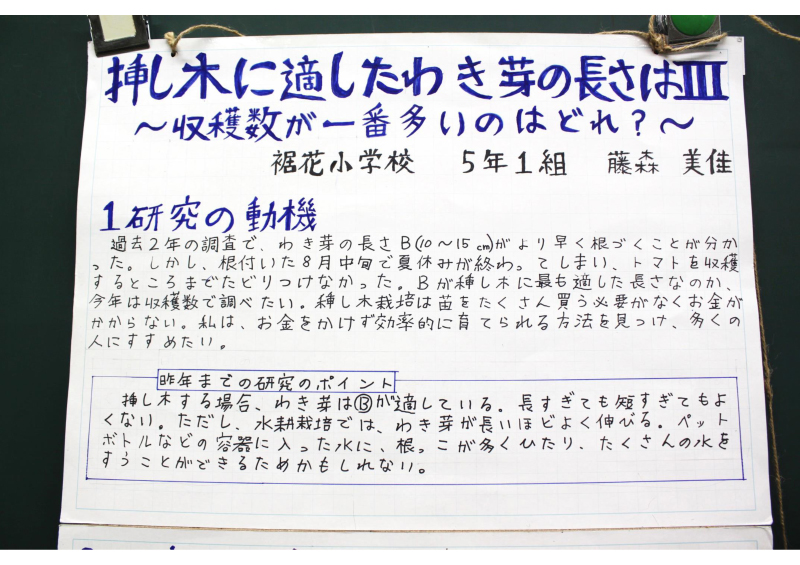 挿し木に適したわき芽の長さはⅢ
～収穫数が一番多いのはどれ？～
裾花小学校 5年1組 藤森 美佳
1研究の動機
過去2年の調査で、わき芽の長さB(10～15㎝)がより早く根づくことが分か
った。しかし、根付いた8月中旬で夏休みが終わってしまい、トマトを収穫
するところまでたどりつけなかった。Bが挿し木に最も適した長さなのか、
今年は収穫数で調べたい。挿し木栽培は苗をたくさん買う必要がなくお金が
かからない。私は、お金をかけず効率的に育てられる方法を見つけ、多くの
人にすすめたい。
昨年までの研究のポイント
挿し木する場合、わき芽はⒷが適している。長すぎても短すぎてもよ
くない。ただし、水耕栽培では、わき芽が長いほどよく伸びる。ペット
ボトルなどの容器に入った水に、根っこが多くひたり、たくさんの水を
すうことができるためかもしれない。